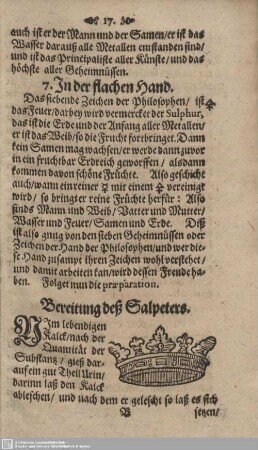 17.
auch ist er der Mann und der Samen/er ist das
Wasser darauß alle Metallen entstanden sind/
und ist das Principaliste aller Künste/und das
höchste aller Geheimnüssen.
7. In der flachen Hand.
Das siebende Zeichen der Philosophen/ ist 🜍
das Feuer/darbey wird vermercket der Sulphur,
das ist die Erde und der Anfang aller Metallen/
er ist das Weib/so die Frucht fortbringet. Dann
kein Samen mag wachsen/er werde dann zuvor
in ein fruchtbar Erdreich geworffen/ alsdann
kommen davon schöne Früchte. Also geschicht
auch/wann ein reiner ☿ mit einem 🜍 vereinigt
wird/ so bringt er reine Früchte herfür: Also
sinds Mann und Weib/Vatter und Mutter/
Wasser und Feuer/Samen und Erde. Diß
ist also gnug von den sieben Geheimnüssen oder
Zeichen der Hand der Philosophen/und wer die-
se Hand zusampt ihren Zeichen wohl verstehet/
und damit arbeiten kan/wird dessen Freude ha-
ben. Folget nun die præparation.
Bereitung deß Salpeters.
NIm lebendigen
Kalck/nach der
Quantität der
Substantz / gieß dar-
auf ein gut Theil Urin/
darinn laß den Kalck
ableschen/ und nach dem er gelescht so laß es sich
B setzen/